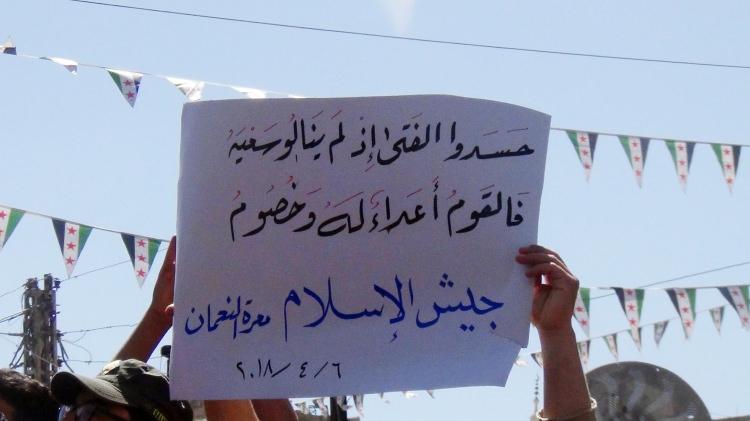 حَسَدوا الفَتىٰ إِذْ لَمْ يَنالُو سَعْيَهُ
فَالقَومُ أَعداءٌ لَهُ وَخُصُومُ
جيش الإسلام معرة النعمان
٢٠١٨/٤/٦